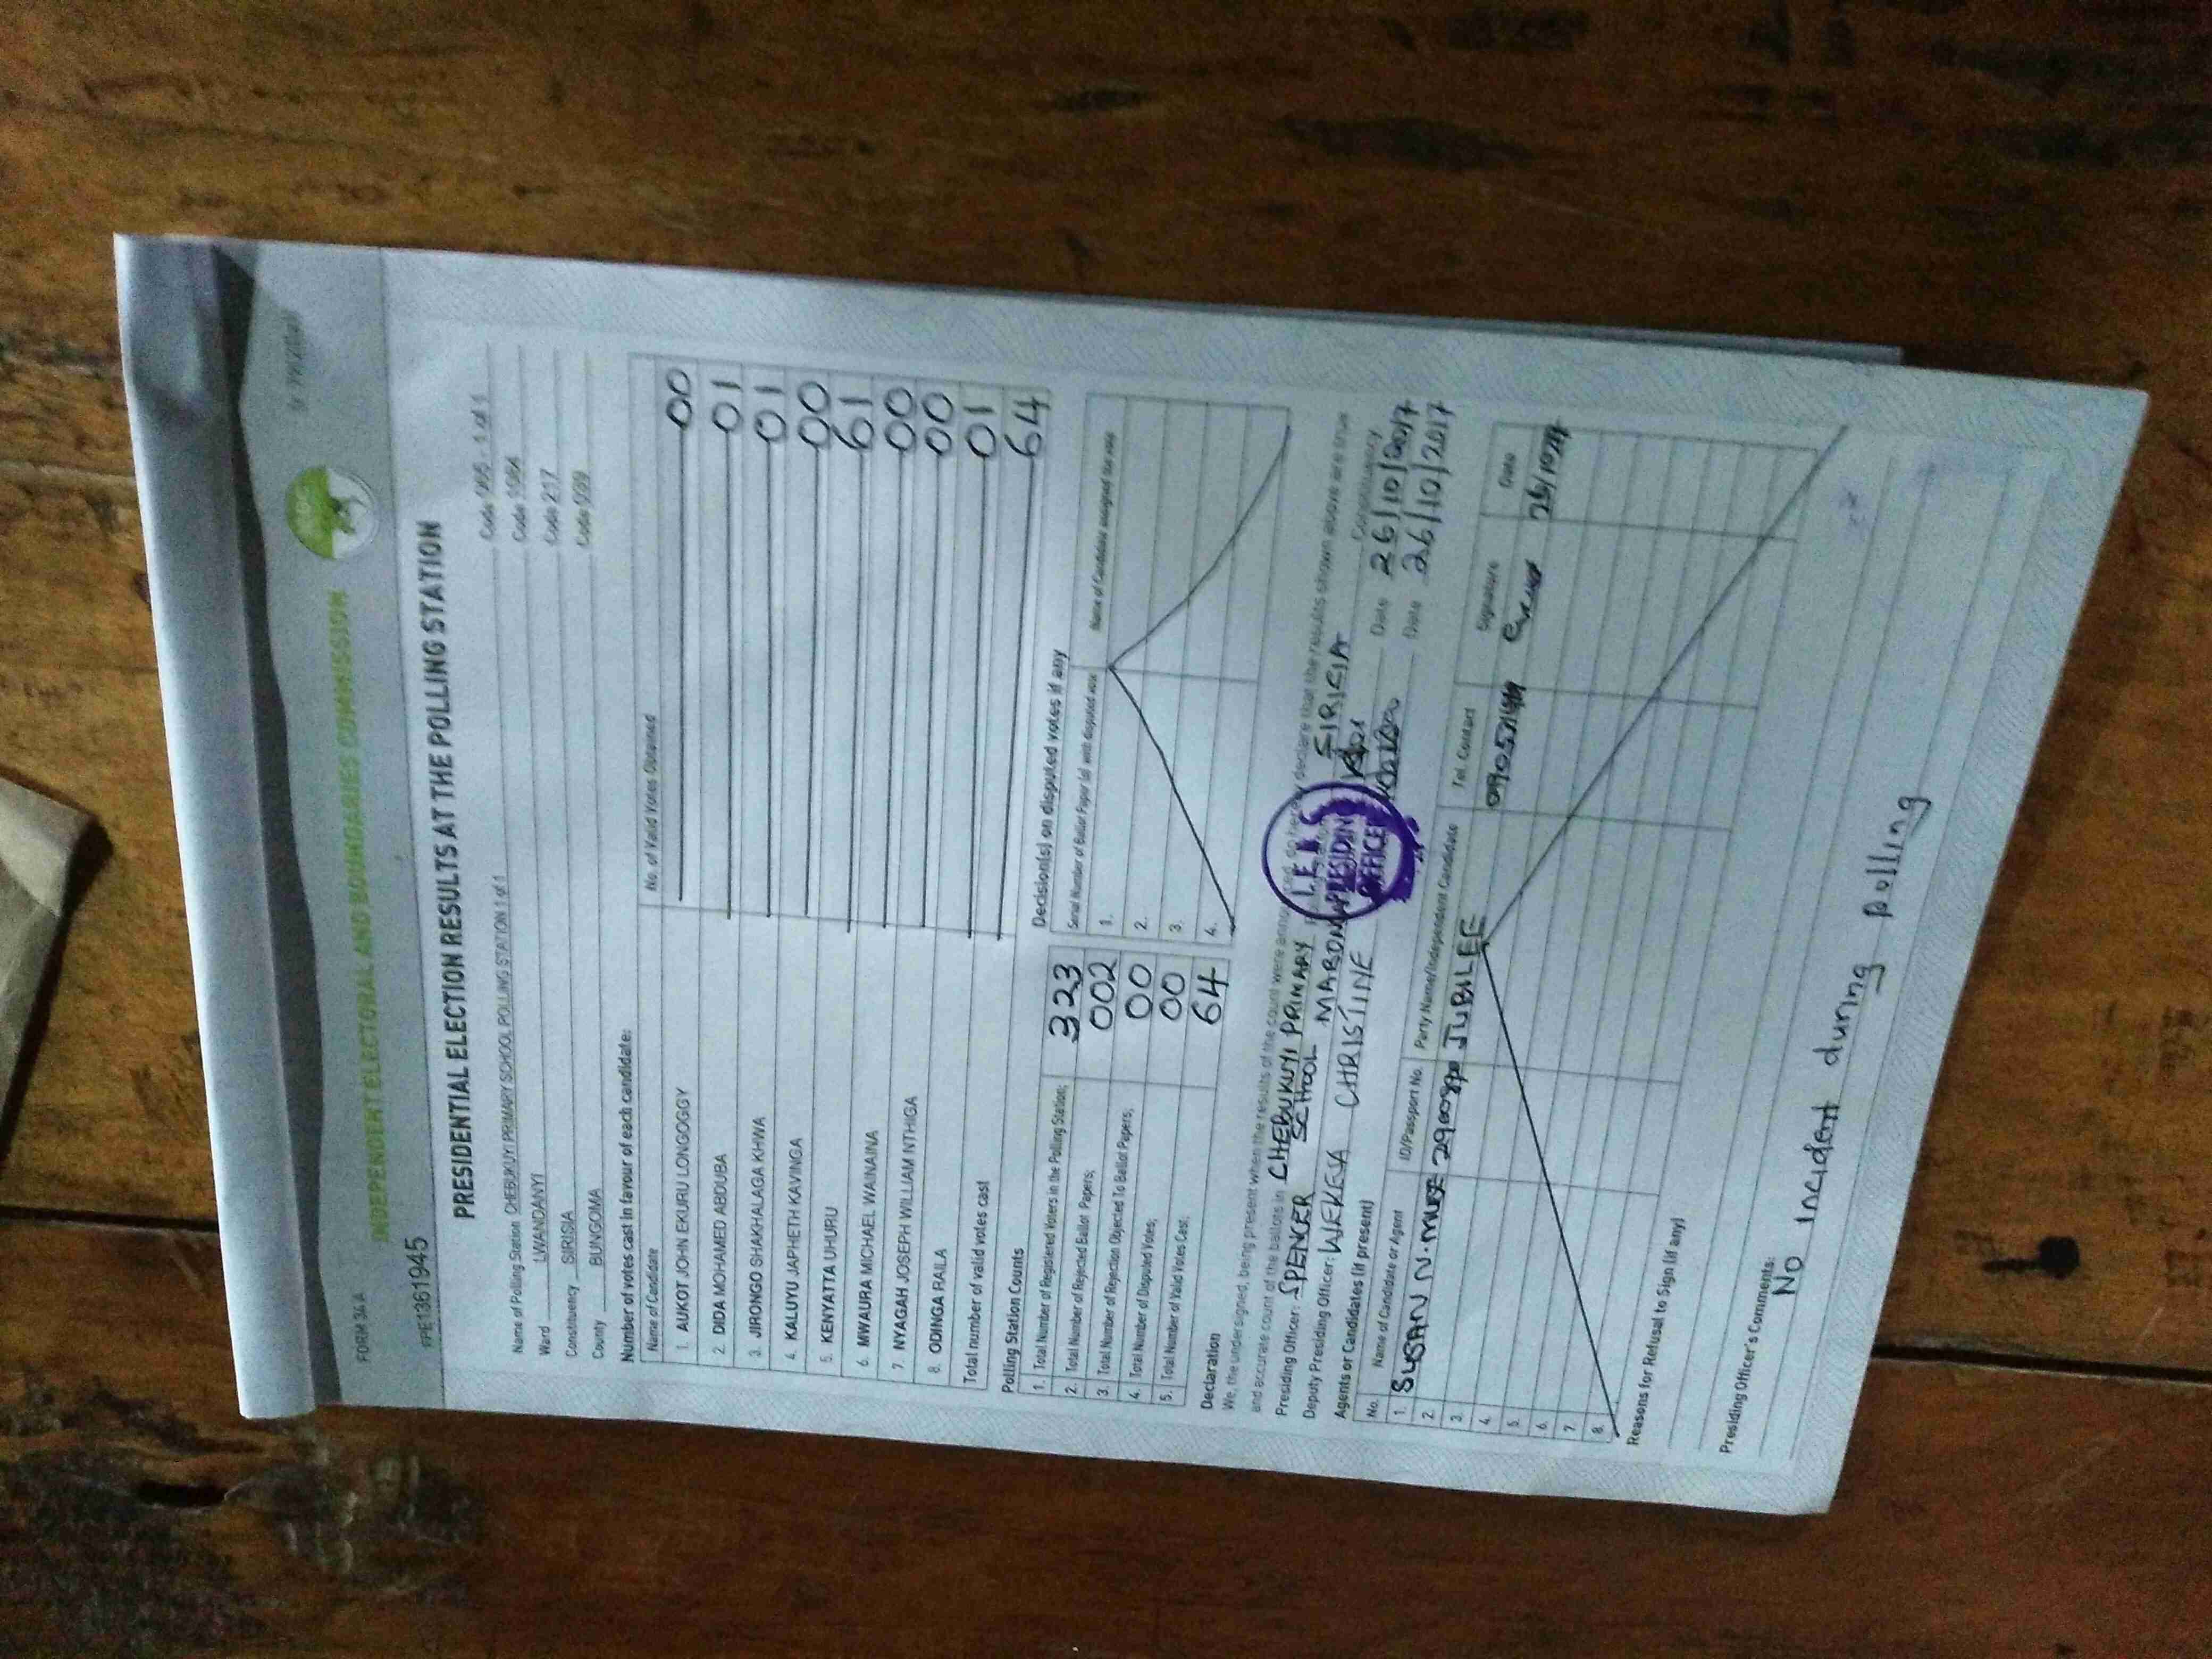 FORM 34 A
INDEPENDENT ELECTORAL AND BOUNDARIES COMMISSION
IEBC
PRE1361945
PRESIDENTIAL ELECTION RESULTS AT THE POLLING STATION
Name of Polling Station CHEBUKUYI PRIMARY SCHOOL POLLING STATION 1 of 1 Code 065 - 1 of 1
Ward LWANDANYI Code 1084
Constituency SIRISIA Code 217
County BUNGOMA Code 039
Number of votes cast in favour of each candidate:
Name of Candidate No. of Valid Votes Obtained
1. AUKOT JOHN EKURU LONGOGGY 00
2. DIDA MOHAMED ABDUBA 01
3. JIRONGO SHAKHALAGA KHWA 01
4. KALUYU JAPHETH KAVINGA 00
5. KENYATTA UHURU 61
6. MWAURA MICHAEL WAINAINA 00
7. NYAGAH JOSEPH WILLIAM NTHIGA 00
8. ODINGA RAILA 01
Total number of valid votes cast 64
Polling Station Counts
1. Total Number of Registered Voters in the Polling Station; 323
2. Total Number of Rejected Ballot Papers; 002
3. Total Number of Rejection Objected To Ballot Papers; 00
4. Total Number of Disputed Votes; 00
5. Total Number of Valid Votes Cast; 64
Decision(s) on disputed votes if any
Serial Number of Ballot Paper (s) with disputed vote Name of Candidate assigned the vote
1.
2.
3.
4.
Declaration
We, the undersigned, being present when the results of the count were announced, do hereby declare that the results shown above are true
and accurate count of the ballots in CHEBUKUYI PRIMARY SCHOOL SIRISIA Constituency
Presiding Officer: SPENCER Date 26/10/2017
Deputy Presiding Officer: WEKESA CHRISTINE Date 26/10/2017
IEBC
PRESIDING
OFFICER
Agents or Candidates (if present)
No. Name of Candidate or Agent ID/Passport No. Party Name/Independent Candidate Tel. Contact Signature Date
1. SUSAN N. JUBILEE
2.
3.
4.
5.
6.
7.
8.
Reasons for Refusal to Sign (if any)
Presiding Officer's Comments:
No Incident during polling